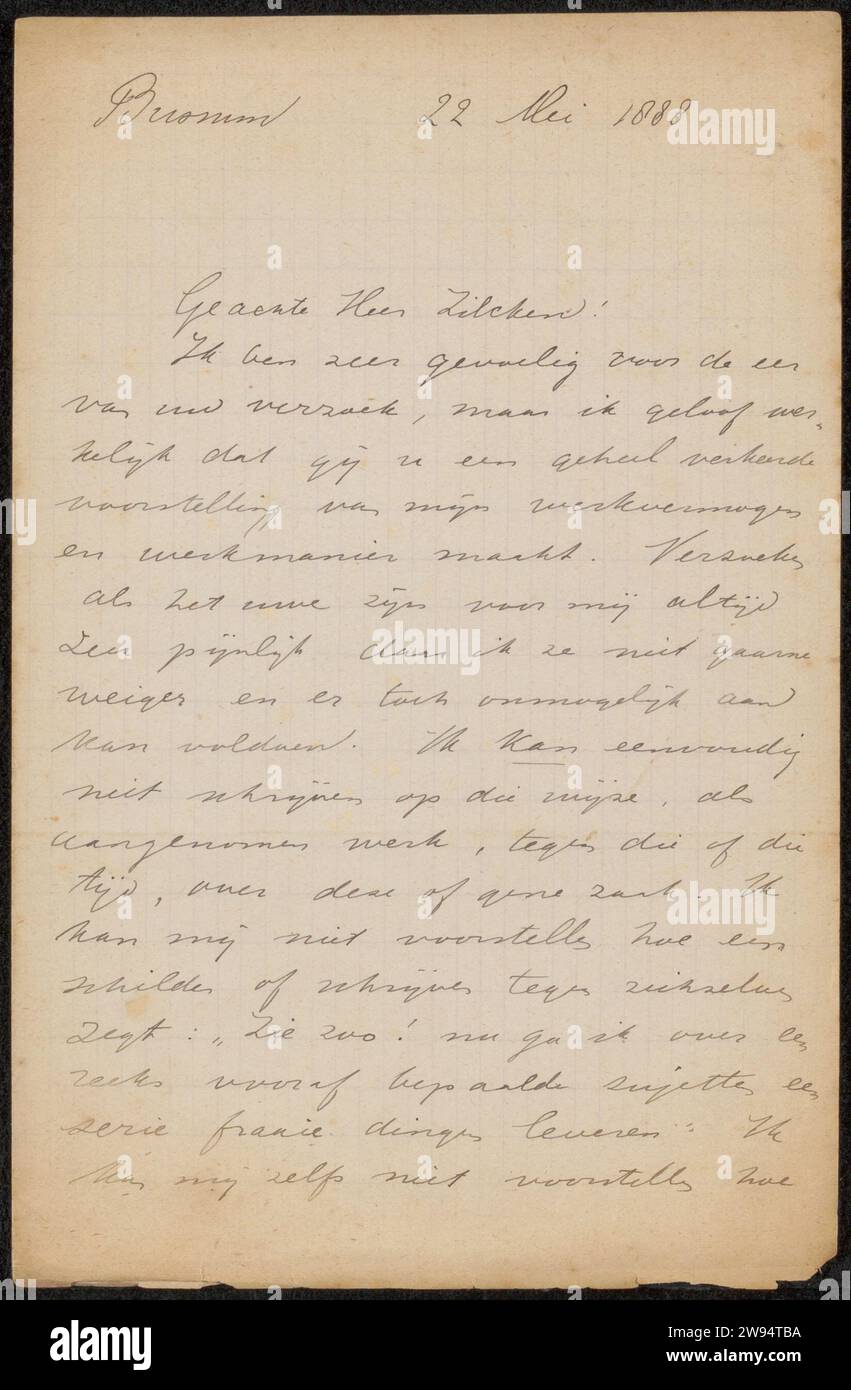 Bussum 22 Mei 1888
Geachte Heer Zilcken!
Ik ben zeer gevoelig voor de eer
van uw verzoek, maar ik geloof wer-
kelijk dat gij u een geheel verkeerde
voorstelling van mijn werkvermogen
en werkmanier maakt. Verzoeken
als het uwe zijn voor mij altijd
zeer pijnlijk daar ik ze niet gaarne
weiger en er toch onmogelijk aan
kan voldoen. Ik kan eenvoudig
niet schrijven op die wijze, als
aangenomen werk, tegen die of die
tijd, over deze of gene zaak. Ik
kan mij niet voorstellen hoe een
schilder of schrijver tegen zichzelven
zegt: „Zie zoo! nu ga ik over een
reeks vooraf bepaalde sujetten een
serie fraaie dingen leveren" Ik
kan mij zelfs niet voorstellen hoe
alamy
Image ID: 2W94TBA
www.alamy.com